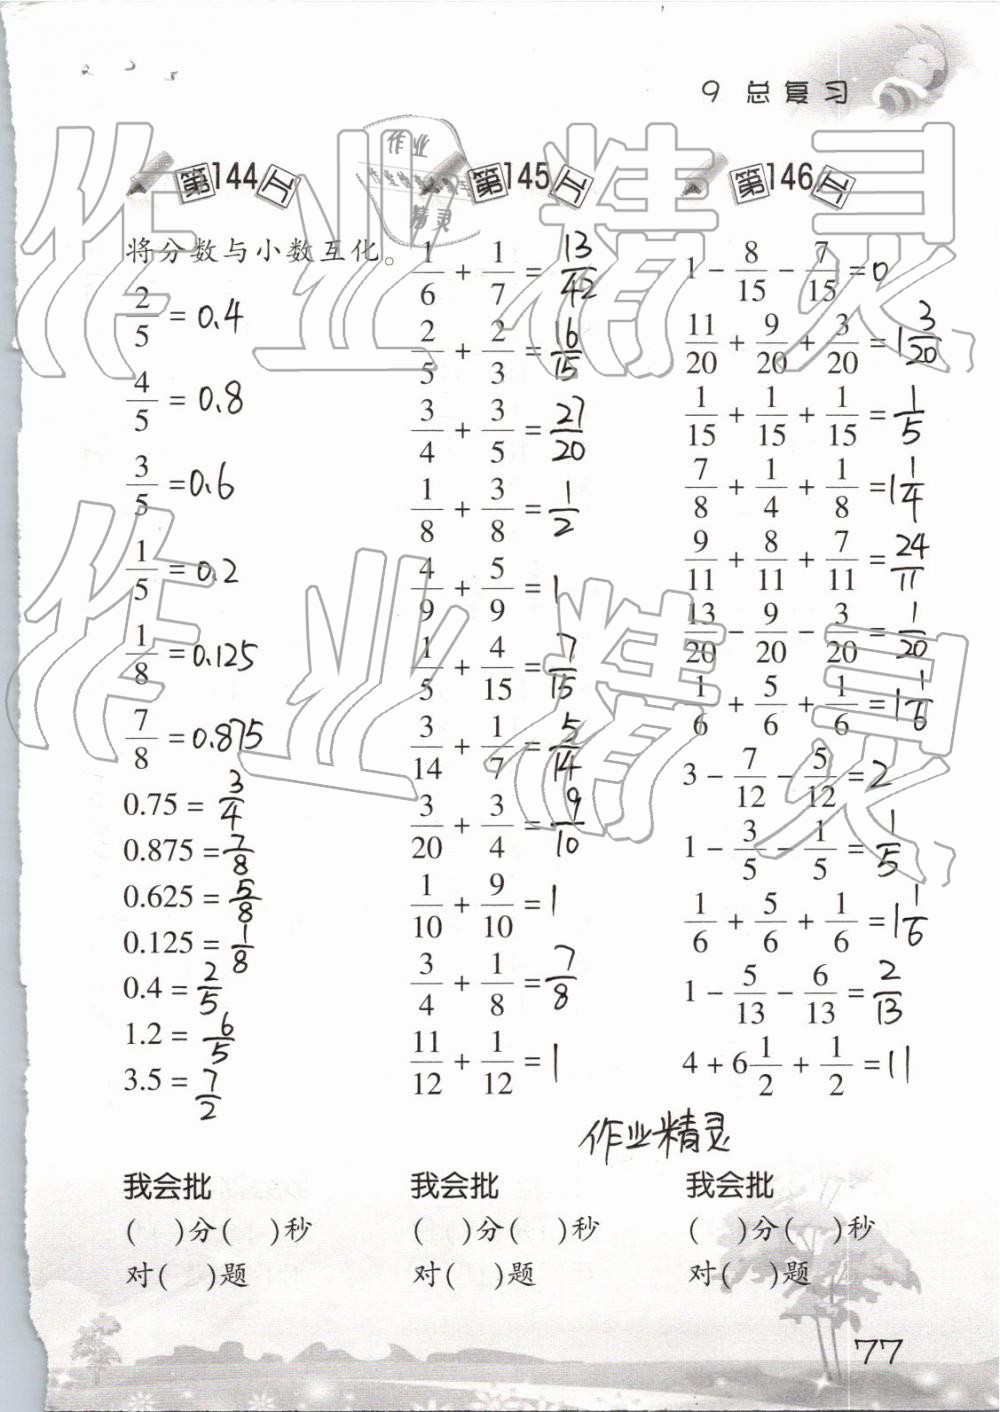 9 总复习
第144页
将分数与小数互化。
2/5 = 0.4
4/5 = 0.8
3/5 = 0.6
1/5 = 0.2
1/8 = 0.125
7/8 = 0.875
0.75 = 3/4
0.875 = 7/8
0.625 = 5/8
0.125 = 1/8
0.4 = 2/5
1.2 = 6/5
3.5 = 7/2
我会批
( )分( )秒
对( )题
第145页
1/6 + 1/7 = 13/42
2/5 + 2/3 = 16/15
3/4 + 3/5 = 27/20
1/8 + 3/8 = 1/2
4/9 + 5/9 = 1
1/5 + 4/15 = 7/15
3/14 + 1/7 = 5/14
3/20 + 3/4 = 9/10
1/10 + 9/10 = 1
3/4 + 1/8 = 7/8
11/12 + 1/12 = 1
我会批
( )分( )秒
对( )题
第146页
1 - 8/15 - 7/15 = 0
11/20 + 9/20 + 3/20 = 1 3/20
1/15 + 1/15 + 1/15 = 1/5
7/8 + 1/4 + 1/8 = 1 1/4
9/11 + 8/11 + 7/11 = 24/11
13/20 - 9/20 - 3/20 = 1/20
1/6 + 5/6 + 1/6 = 1 1/6
3 - 7/12 - 5/12 = 2
1 - 3/5 - 1/5 = 1/5
1/6 + 5/6 + 1/6 = 1 1/6
1 - 5/13 - 6/13 = 2/13
4 + 6 1/2 + 1/2 = 11
作业精灵
我会批
( )分( )秒
对( )题
77
作业
精灵
作业精灵
作业精灵